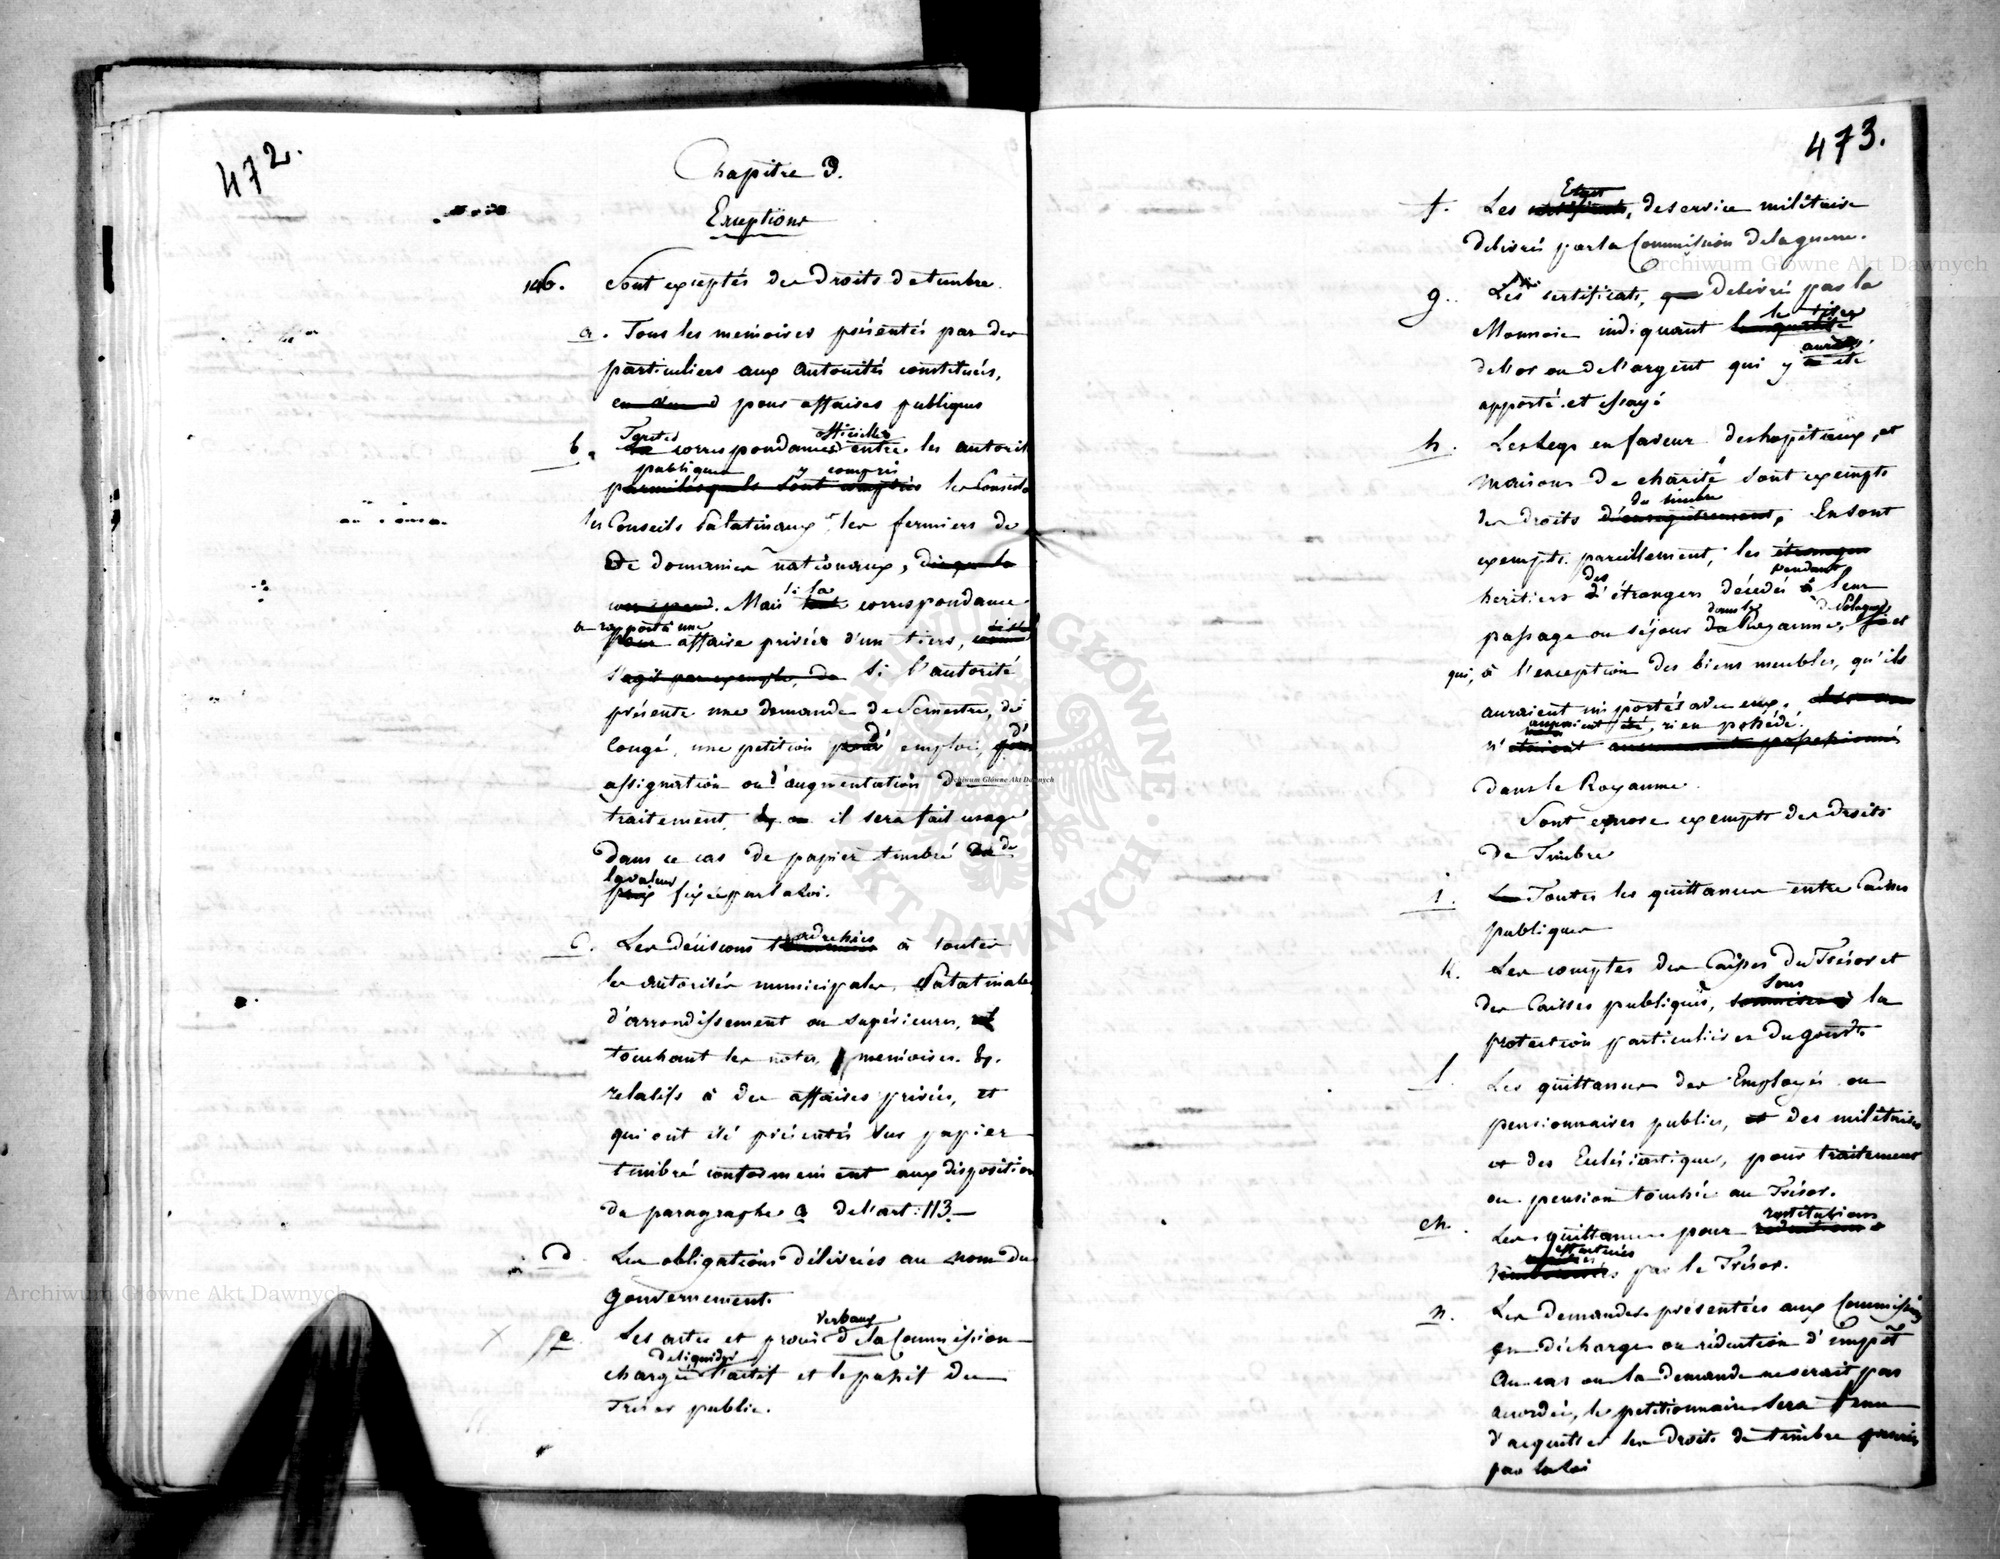 472.
Chapitre 3.
Exceptions
146. Sont exceptés des Droits de timbre.
a. Tous les memoires présentés par des
particuliers aux autorités constituées,
pour affaires publiques
Toutes officielles
b. La correspondances entre les autorit
publiques y compris
parmi lesquels sont comptés les Conseils
les Conseils Palatinaux, les fermiers de
de domaines nationaux,
si la
Mais correspondance
a rapport à une
pour affaire privée d'un tiers,
s'agit par exemple, de si l'autorité
présente une demande de Semestre, de
Congé, une petition pour d' emploi, d'
assignation ou d'augmentation de
traitement, il sera fait usage
dans ce cas de papier timbré de
la valeur
prix fixée par la Loi.
adressées
c. Les décisions à toutes
les autorités municipales, Palatinales
d'arrondissement ou supérieures,
touchant les notes, memoires &.
relatifs à des affaires privées, et
qui ont été présentés sur papier
timbré conformement aux disposition
du paragraphe a de l'art: 113.
d Les obligations délivrées au nom du
Gouvernement.
verbaux
e. Les actes et procés de la Commission
de liquider
chargée l'actif et le passif du
Trésor public.
473.
f. Les certificats, de service militaire
delivrés par la Commission de la guerre.
g. Les certificats, que delivrés par la
le titre
Monnoie indiquant la qualité
aurait
de l'or ou de l'argent qui y a été
apporté et essayé
h. Les Legs en faveur des hopitaux, et
maisons de charité sont exempts
du timbre
des droits d'enregistrement, En sont
exempts pareillement, les étrangers
des pendant
heritiers d'étrangers décedés à leur
dans le de Pologne
passage ou séjour du royaume, et
qui, à l'exception des biens meubles, qu'ils
auraient importés avec eux,
auraient été, rien possédé.
n'étaient aucunement possessionnés
dans le Royaume.
Sont encore exempts des droits
de Timbre
i. Toutes les quittances entre Caisses
publiques
k. Les comptes des Caisses du Trésor et
sous
des Caisses publiques, soumises à la
protection particulière du gouvt.
l. Les quittances des Employés ou
pensionnaires publics, et des militaires
et des Ecclésiastiques, pour traitement
ou pension touchée au Trésor.
restitutions
m. Les quittances pour
effectuées
par le Trésor.
n. Les demandes présentées aux Commissions
en décharge ou réduction d'impôt
Au cas ou la demande ne serait pas
accordée, le petitionnaire sera tenu
d'acquitter les droits de timbre
par la Loi
Archiwum Główne Akt Dawnych
Archiwum Główne Akt Dawnych
Archiwum Główne Akt Dawnych